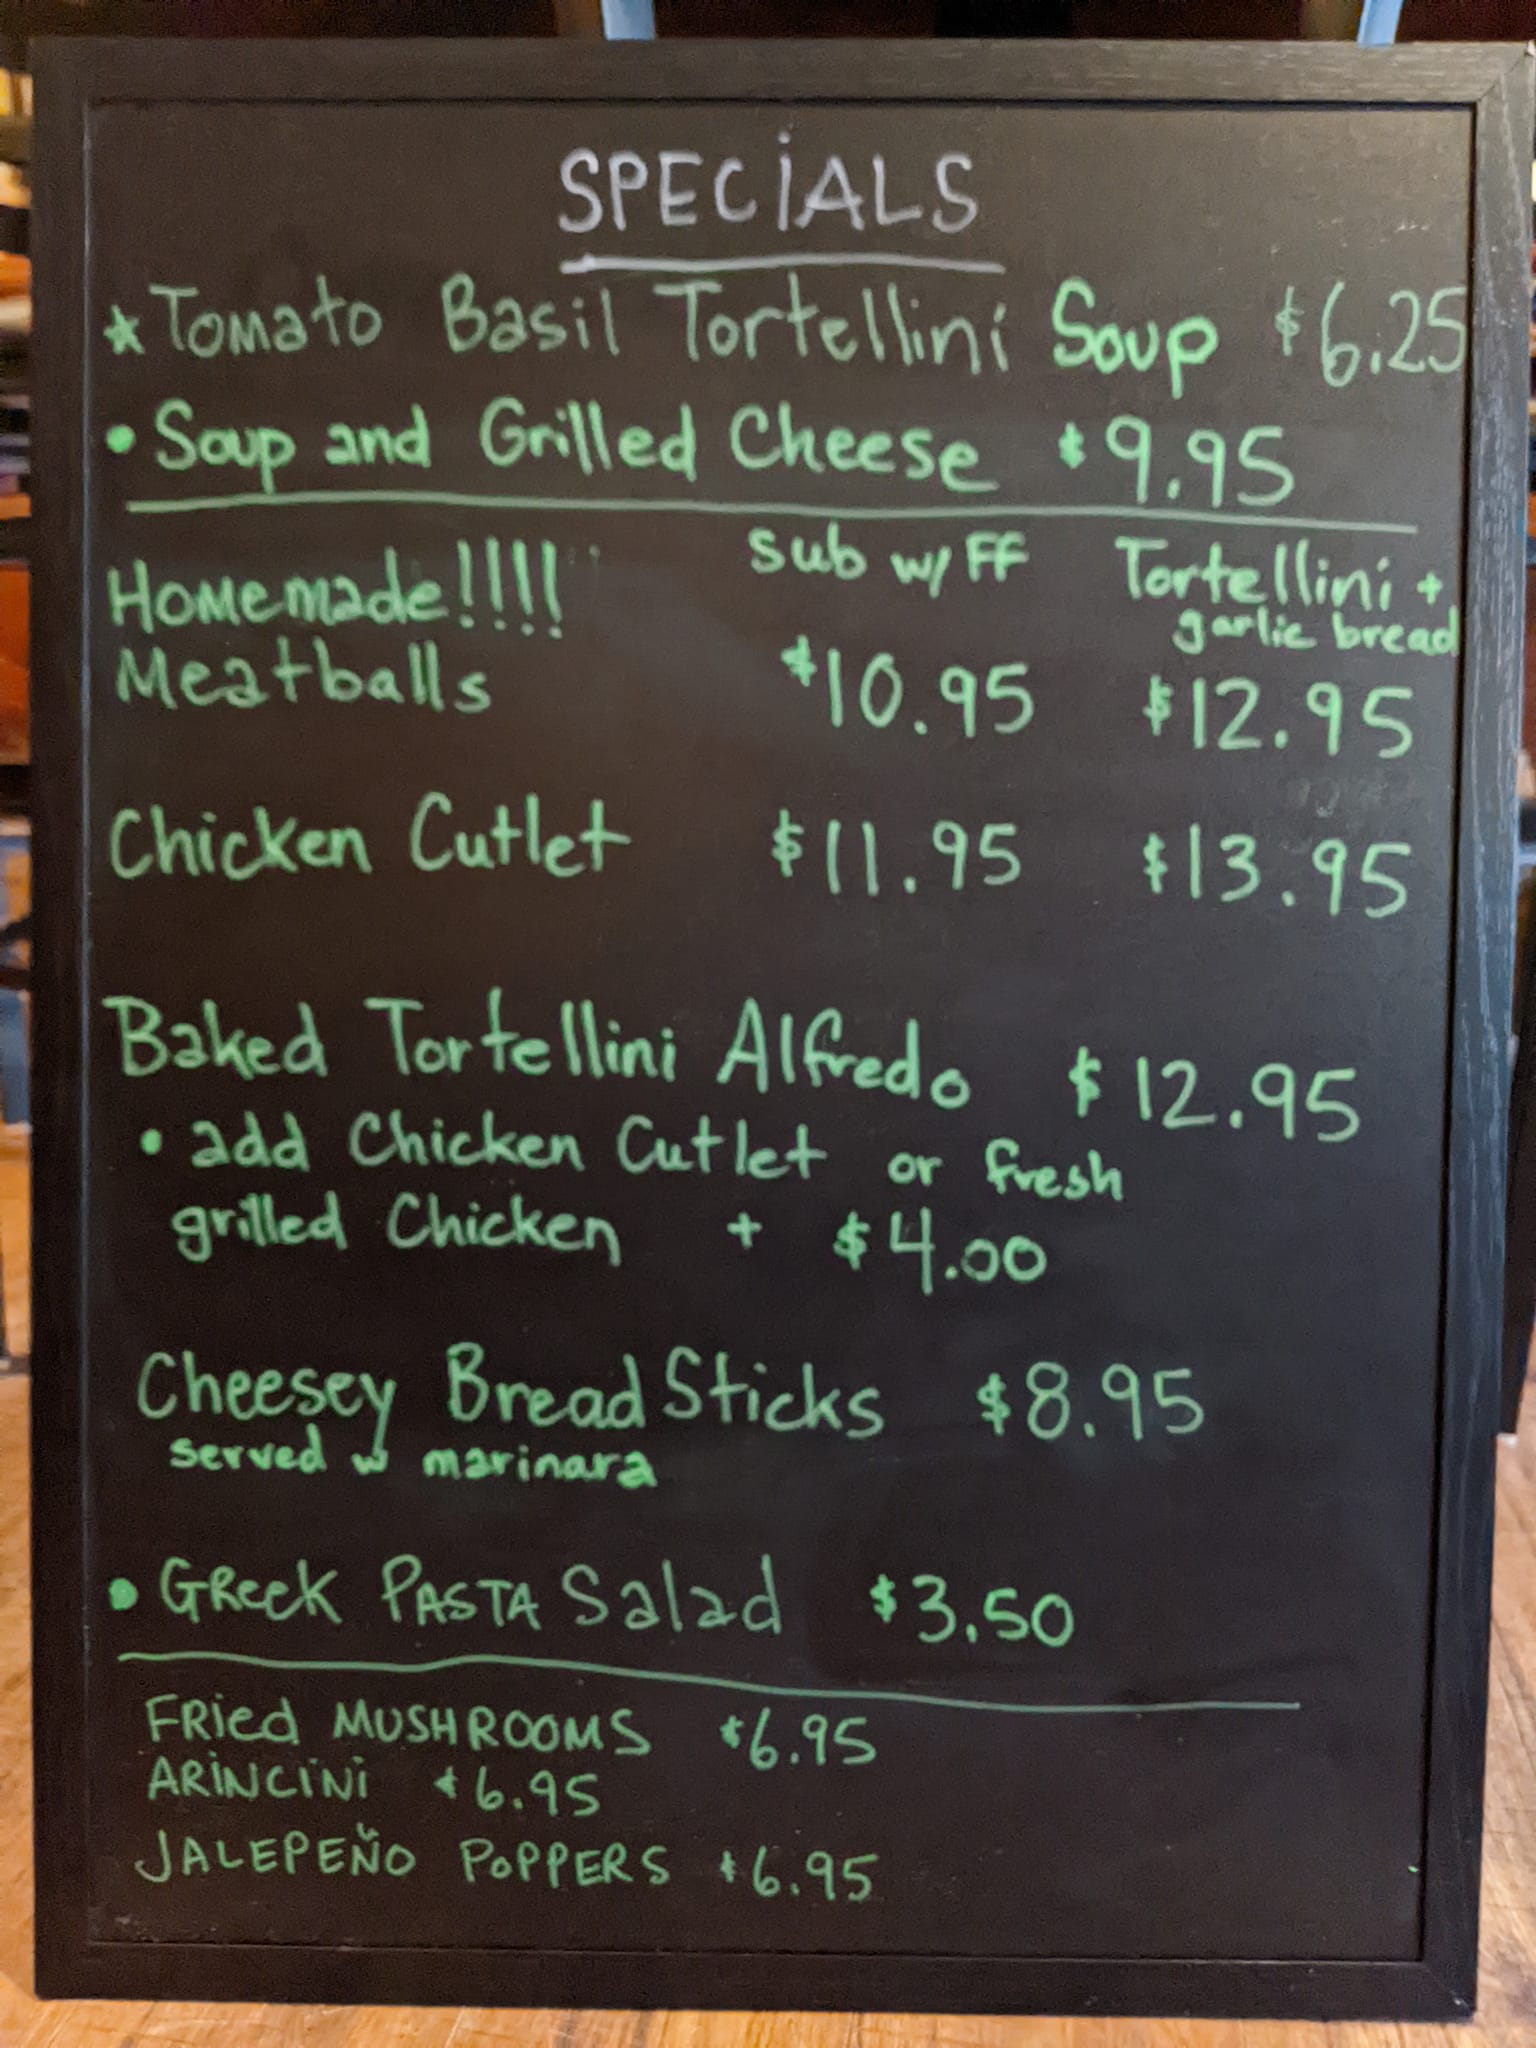 SPECiALS
* Tomato Basil Tortellini Soup $6.25
• Soup and Grilled Cheese $9.95
Homemade!!!! sub w/ FF Tortellini +
garlic bread
Meatballs $10.95 $12.95
Chicken Cutlet $11.95 $13.95
Baked Tortellini Alfredo $12.95
• add Chicken Cutlet or fresh
grilled Chicken + $4.00
Cheesey Bread Sticks $8.95
served w marinara
• GReek PASTA Salad $3.50
FRied MUSHROOMS $6.95
ARiNCiNi $6.95
JALEPEÑO POPPERS $6.95